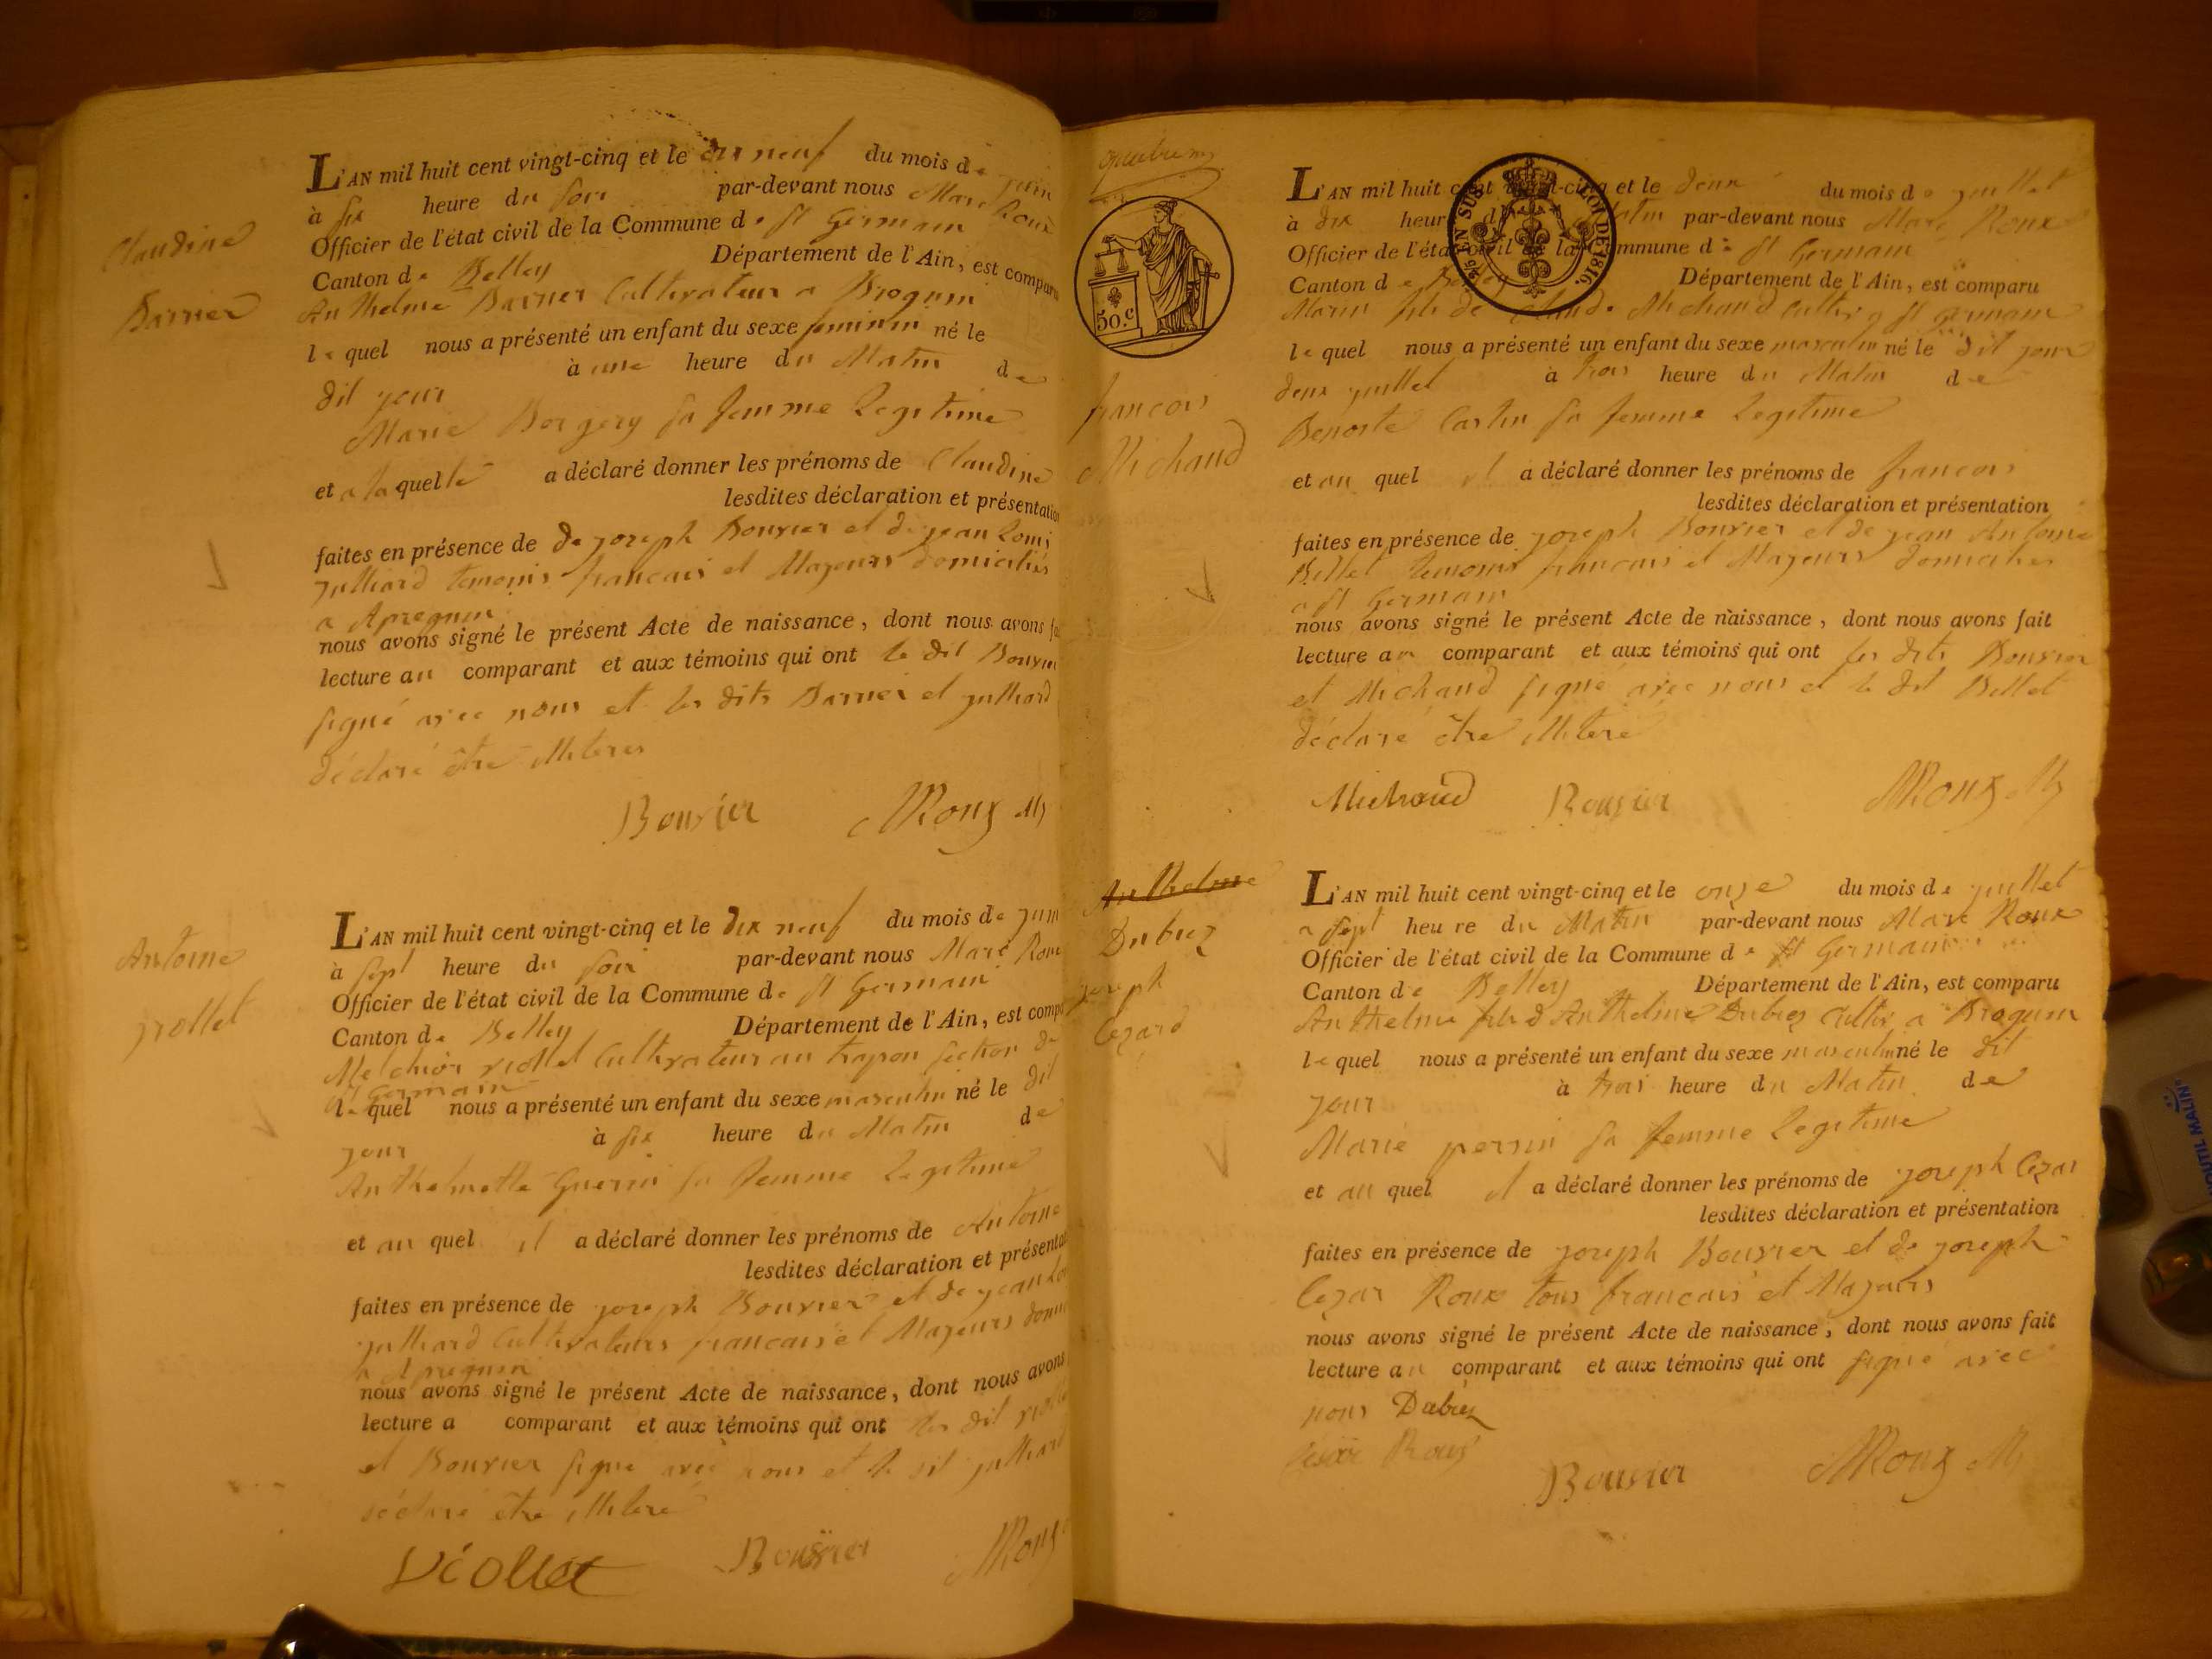 Claudine
Barrier
L'AN mil huit cent vingt-cinq et le dix neuf du mois de juin
à six heure du soir par-devant nous Marc Roux
Officier de l'état civil de la Commune de st Germain
Canton de Belley Département de l'Ain, est comparu
Anthelme Barrier Cultivateur a Brognin
le quel nous a présenté un enfant du sexe feminin né le
dit jour à une heure du Matin de
Marie Borgery sa femme Legitime
et a la quelle a déclaré donner les prénoms de Claudine
lesdites déclaration et présentation
faites en présence de de joseph Bouvier et de jean Louis
julliard temoins francais et Majeurs domiciliés
a Apregnin
nous avons signé le présent Acte de naissance, dont nous avons fa
lecture au comparant et aux témoins qui ont le dit Bouvier
signé avec nous et les dits Barrier et julliard
déclaré être illiteres
Bouvier MRoux
Antoine
L'AN mil huit cent vingt-cinq et le dix neuf du mois de juin
à sept heure du soir par-devant nous Marc Roux
Officier de l'état civil de la Commune de st Germain
Canton de Belley Département de l'Ain, est comp
Melchior viollet Cultivateur au trapon section de
st Germain
le quel nous a présenté un enfant du sexe masculin né le dit
jour à six heure du Matin de
Anthelmette Guerin sa femme Legitime
et au quel il a déclaré donner les prénoms de Antoine
lesdites déclaration et présentat
faites en présence de joseph Bouvier et de jean Lou
julliard Cultivateurs francais et Majeurs domi
a Apregnin
nous avons signé le présent Acte de naissance, dont nous avons
lecture a comparant et aux témoins qui ont les dit viollet
et Bouvier signé avec nous et le dit julliard
déclaré être illiteré
Viollet Bouvier MRoux
50.c
EN SUS LOI DE 1816.
francois
Michaud
L'AN mil huit cent vingt-cinq et le deux du mois de juillet
à dix heure du Matin par-devant nous Marc Roux
Officier de l'état civil de la Commune de st Germain
Canton de Belley Département de l'Ain, est comparu
Marin fils de Claude Michaud Cultiv a st Germain
le quel nous a présenté un enfant du sexe masculin né le dit jour
deux juillet à trois heure du Matin de
Benoite Castin sa femme Legitime
et au quel il a déclaré donner les prénoms de francois
lesdites déclaration et présentation
faites en présence de joseph Bouvier et de jean Antoine
Billet temoins francais et Majeurs domicilies
a st Germain
nous avons signé le présent Acte de naissance, dont nous avons fait
lecture au comparant et aux témoins qui ont les dits Bouvier
et Michaud signé avec nous et le dit Billet
déclaré être illiteré
Michaud Bouvier MRoux
Anthelme
Dubiez
joseph
Cezard
L'AN mil huit cent vingt-cinq et le onze du mois de juillet
a sept heure du Matin par-devant nous Marc Roux
Officier de l'état civil de la Commune de st Germain
Canton de Belley Département de l'Ain, est comparu
Anthelme fils d'Anthelme Dubiez Cultiv a Brognin
le quel nous a présenté un enfant du sexe masculin né le dit
jour à trois heure du Matin de
Marie perrin sa femme Legitime
et au quel il a déclaré donner les prénoms de joseph Cezar
lesdites déclaration et présentation
faites en présence de joseph Bouvier et de joseph
Cezar Roux tous francais et Majeurs
nous avons signé le présent Acte de naissance, dont nous avons fait
lecture au comparant et aux témoins qui ont signé avec
nous Dubiez
Bouvier MRoux
OUTIL MALIN